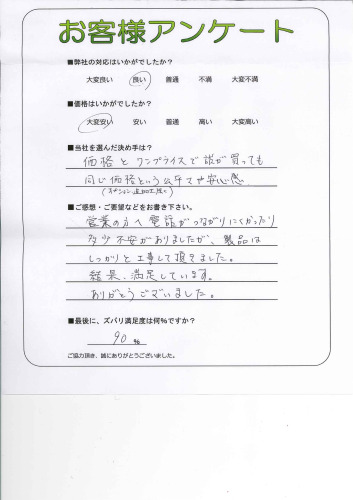 お客様アンケート
■弊社の対応はいかがでしたか？
大変良い 良い 普通 不満 大変不満
■価格はいかがでしたか？
大変安い 安い 普通 高い 大変高い
■当社を選んだ決め手は？
価格とワンプライスで誰が買っても
同じ価格という公平さや安心感
■ご感想・ご要望などをお書き下さい。
営業の方へ電話がつながりにくかったり
多少不安がありましたが、製品は
しっかりと工事して頂きました。
結果、満足しています。
ありがとうございました。
■最後に、ズバリ満足度は何%ですか？
90 %
ご協力頂き、誠にありがとうございました。